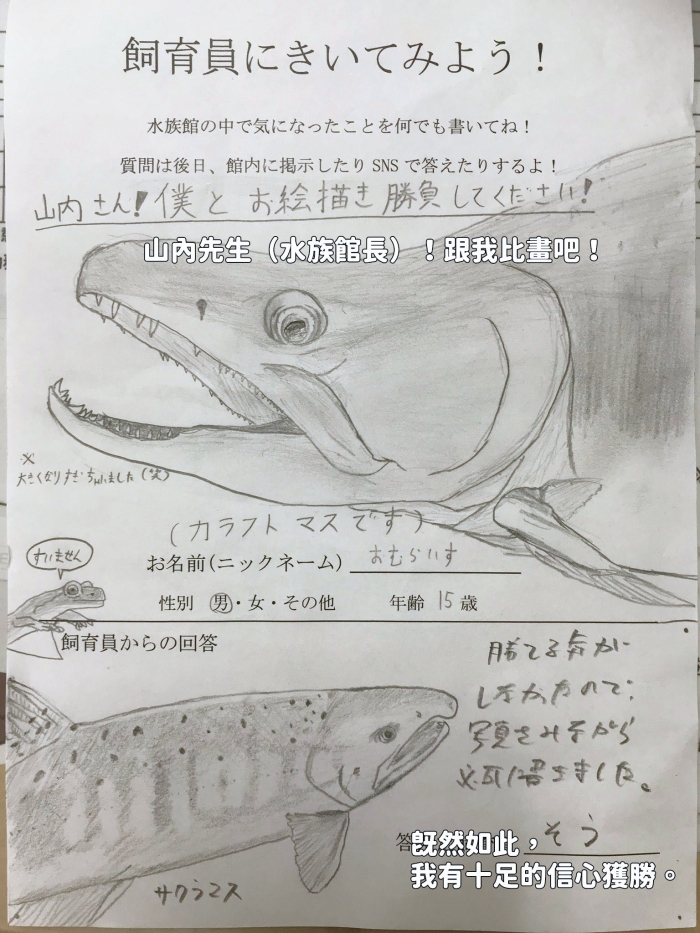 飼育員にきいてみよう！
水族館の中で気になったことを何でも書いてね！
質問は後日、館内に掲示したり SNS で答えたりするよ！
山内さん!僕と お絵描き勝負してください!
山內先生（水族館長）！跟我比畫吧！
※
大きくなりすぎちゃいました(笑)
(カラフトマスです)
お名前(ニックネーム) おむらいす
すいません
性別 男・女・その他 年齢 15歳
飼育員からの回答
勝てる気が
しなかったので、
写真をみながら
必死に描きました。
答 そう
既然如此，
我有十足的信心獲勝。
サクラマス